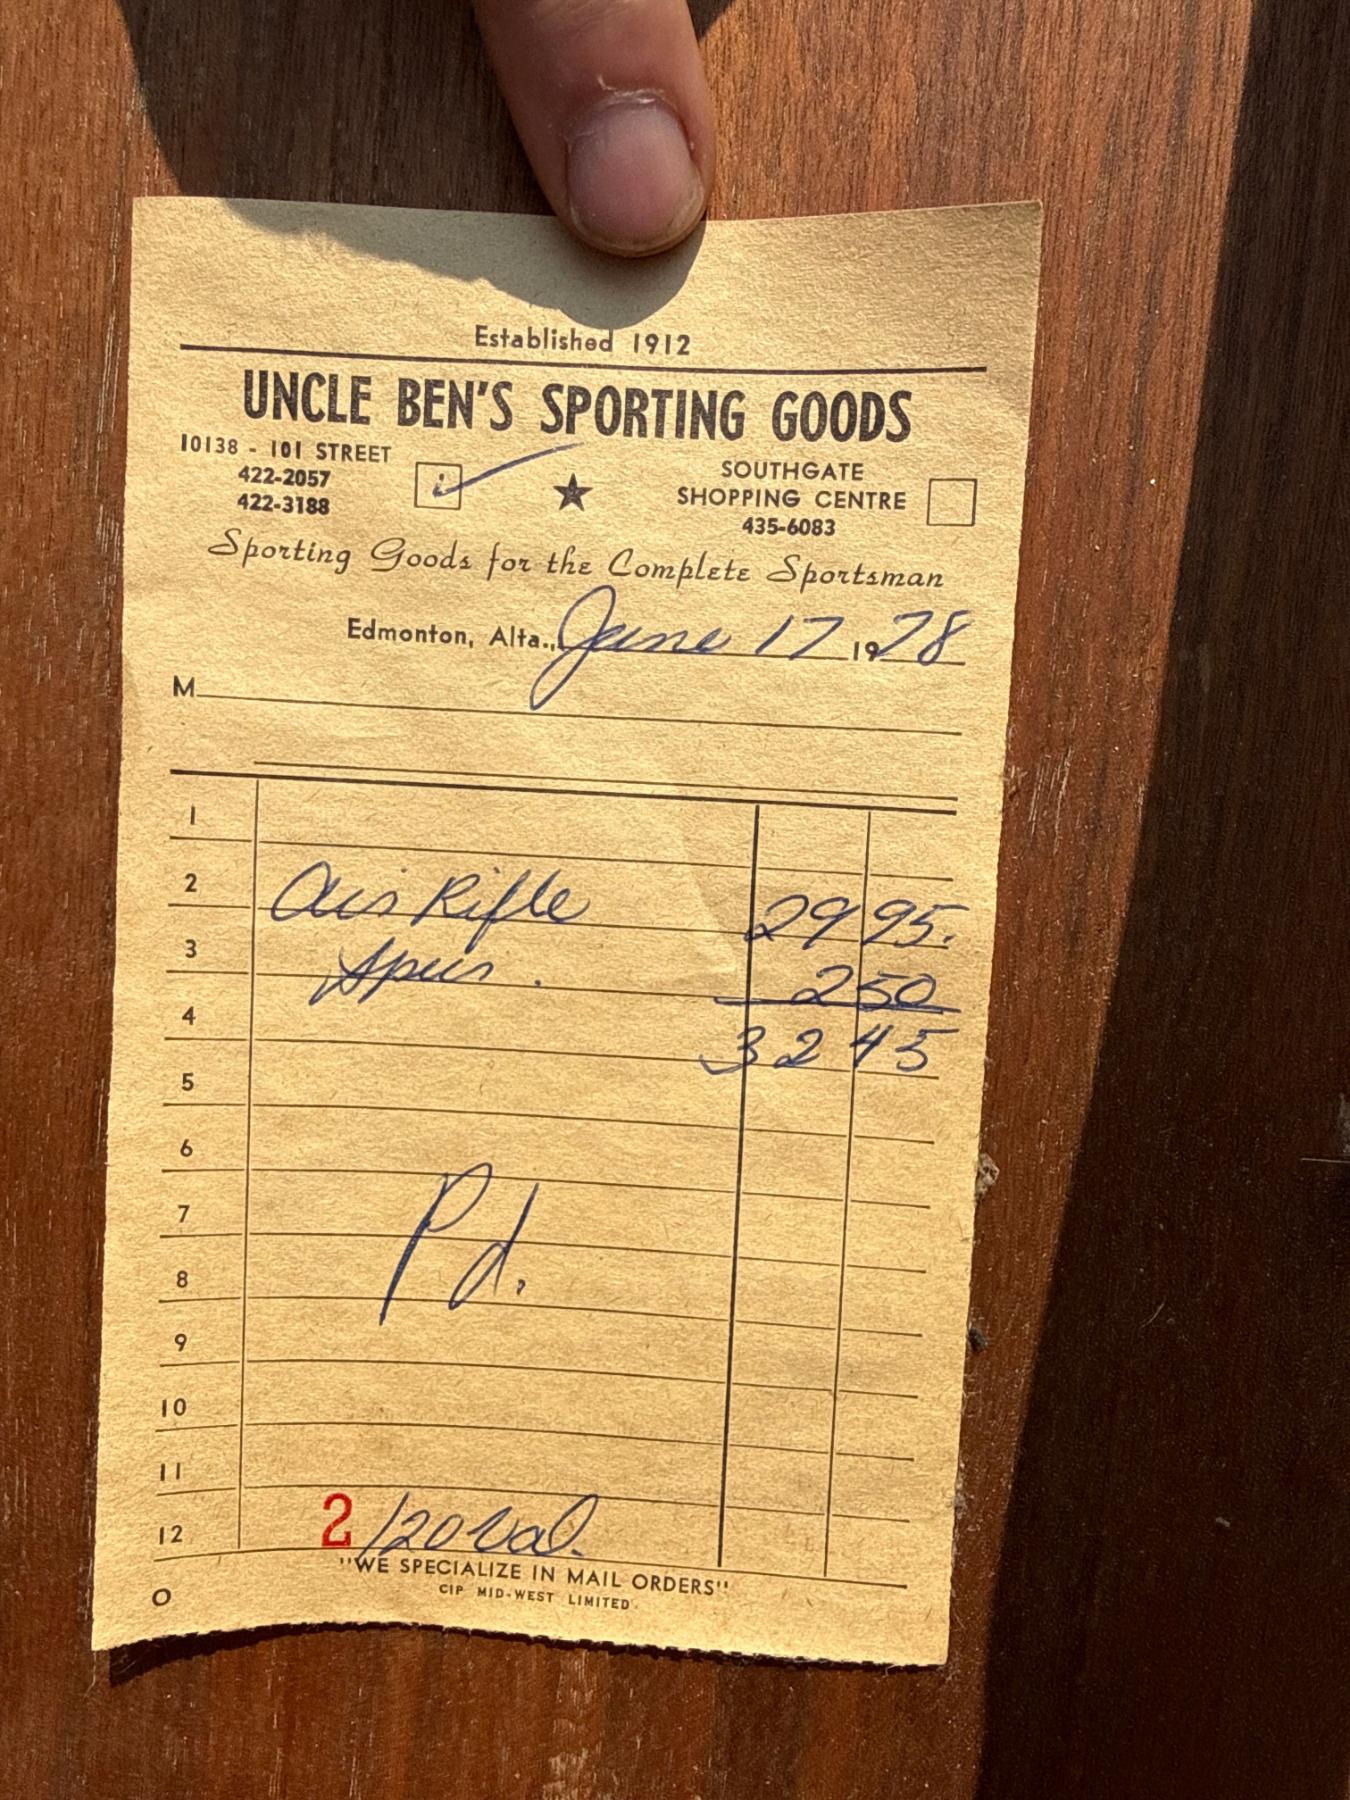 Established 1912
UNCLE BEN'S SPORTING GOODS
10138 - 101 STREET
422-2057
422-3188
SOUTHGATE
SHOPPING CENTRE
435-6083
Sporting Goods for the Complete Sportsman
Edmonton, Alta., June 17 1978
M
1
2 Air Rifle 29 95.
3 2 50
4 32 45
5
6
7 Pd.
8
9
10
11
12 2 /20
"WE SPECIALIZE IN MAIL ORDERS"
CIP MID-WEST LIMITED
O